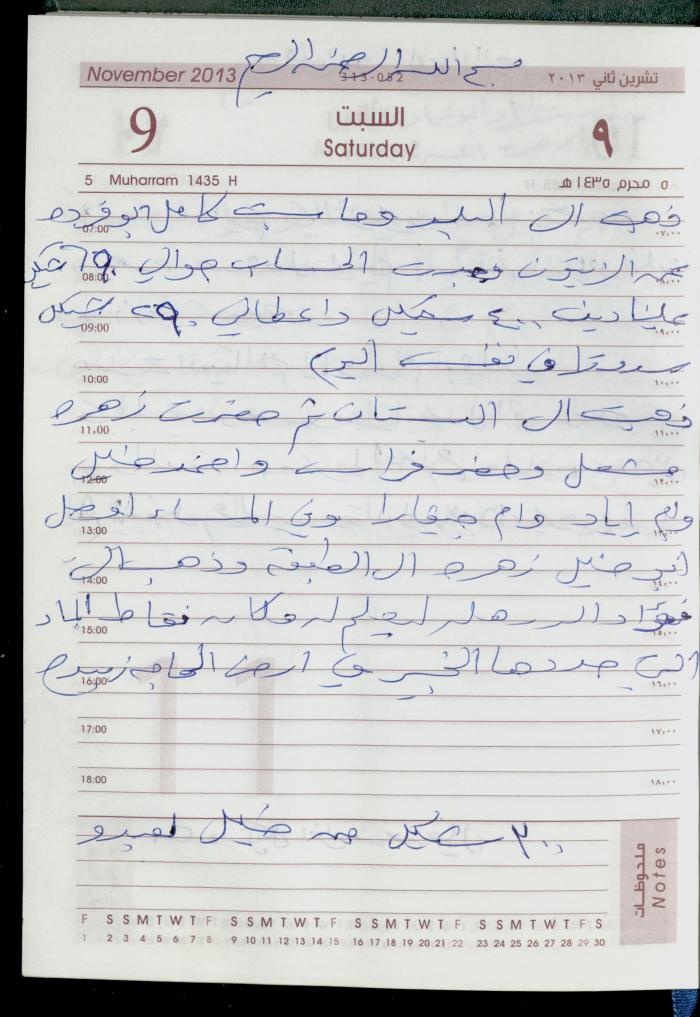 بسم الله الرحمن الرحيم
November 2013 313-052 تشرين ثاني ٢٠١٣
9 السبت ٩
Saturday
5 Muharram 1435 H ٥ محرم ١٤٣٥ هـ
ذهبت الى البلد وحاسبت كامل ابو فرده
07:00 ٠٧,٠٠
عن الزيتون وحسبت الحساب حوالي ٦٩٠ شيكل
08:00 ٠٨,٠٠
٤٠٠ شيكل واعطاني ٢٩٠ شيكل
09:00 ٠٩,٠٠
في نفس اليوم
10:00 ١٠,٠٠
ذهبت الى البستان ثم حضرت زهره
11.00 ١١,٠٠
مشعل وحضر فراس واحمد خليل
12:00 ١٢,٠٠
وام اياد وام جيفارا وفي المساء
13:00 ١٣,٠٠
ابو خليل زهره الى الطبقة وذهب الى
14:00 ١٤,٠٠
فؤاد ليعلم له مكان نقاط الماء
15:00 ١٥,٠٠
التي حددها الخبير في ارض الحاجه زبيده
16:00 ١٦,٠٠
17:00 ١٧,٠٠
18:00 ١٨,٠٠
٣٠٠ شيكل من خليل
ملحوظات
Notes
F S S M T W T F S S M T W T F S S M T W T F S S M T W T F S
1 2 3 4 5 6 7 8 9 10 11 12 13 14 15 16 17 18 19 20 21 22 23 24 25 26 27 28 29 30